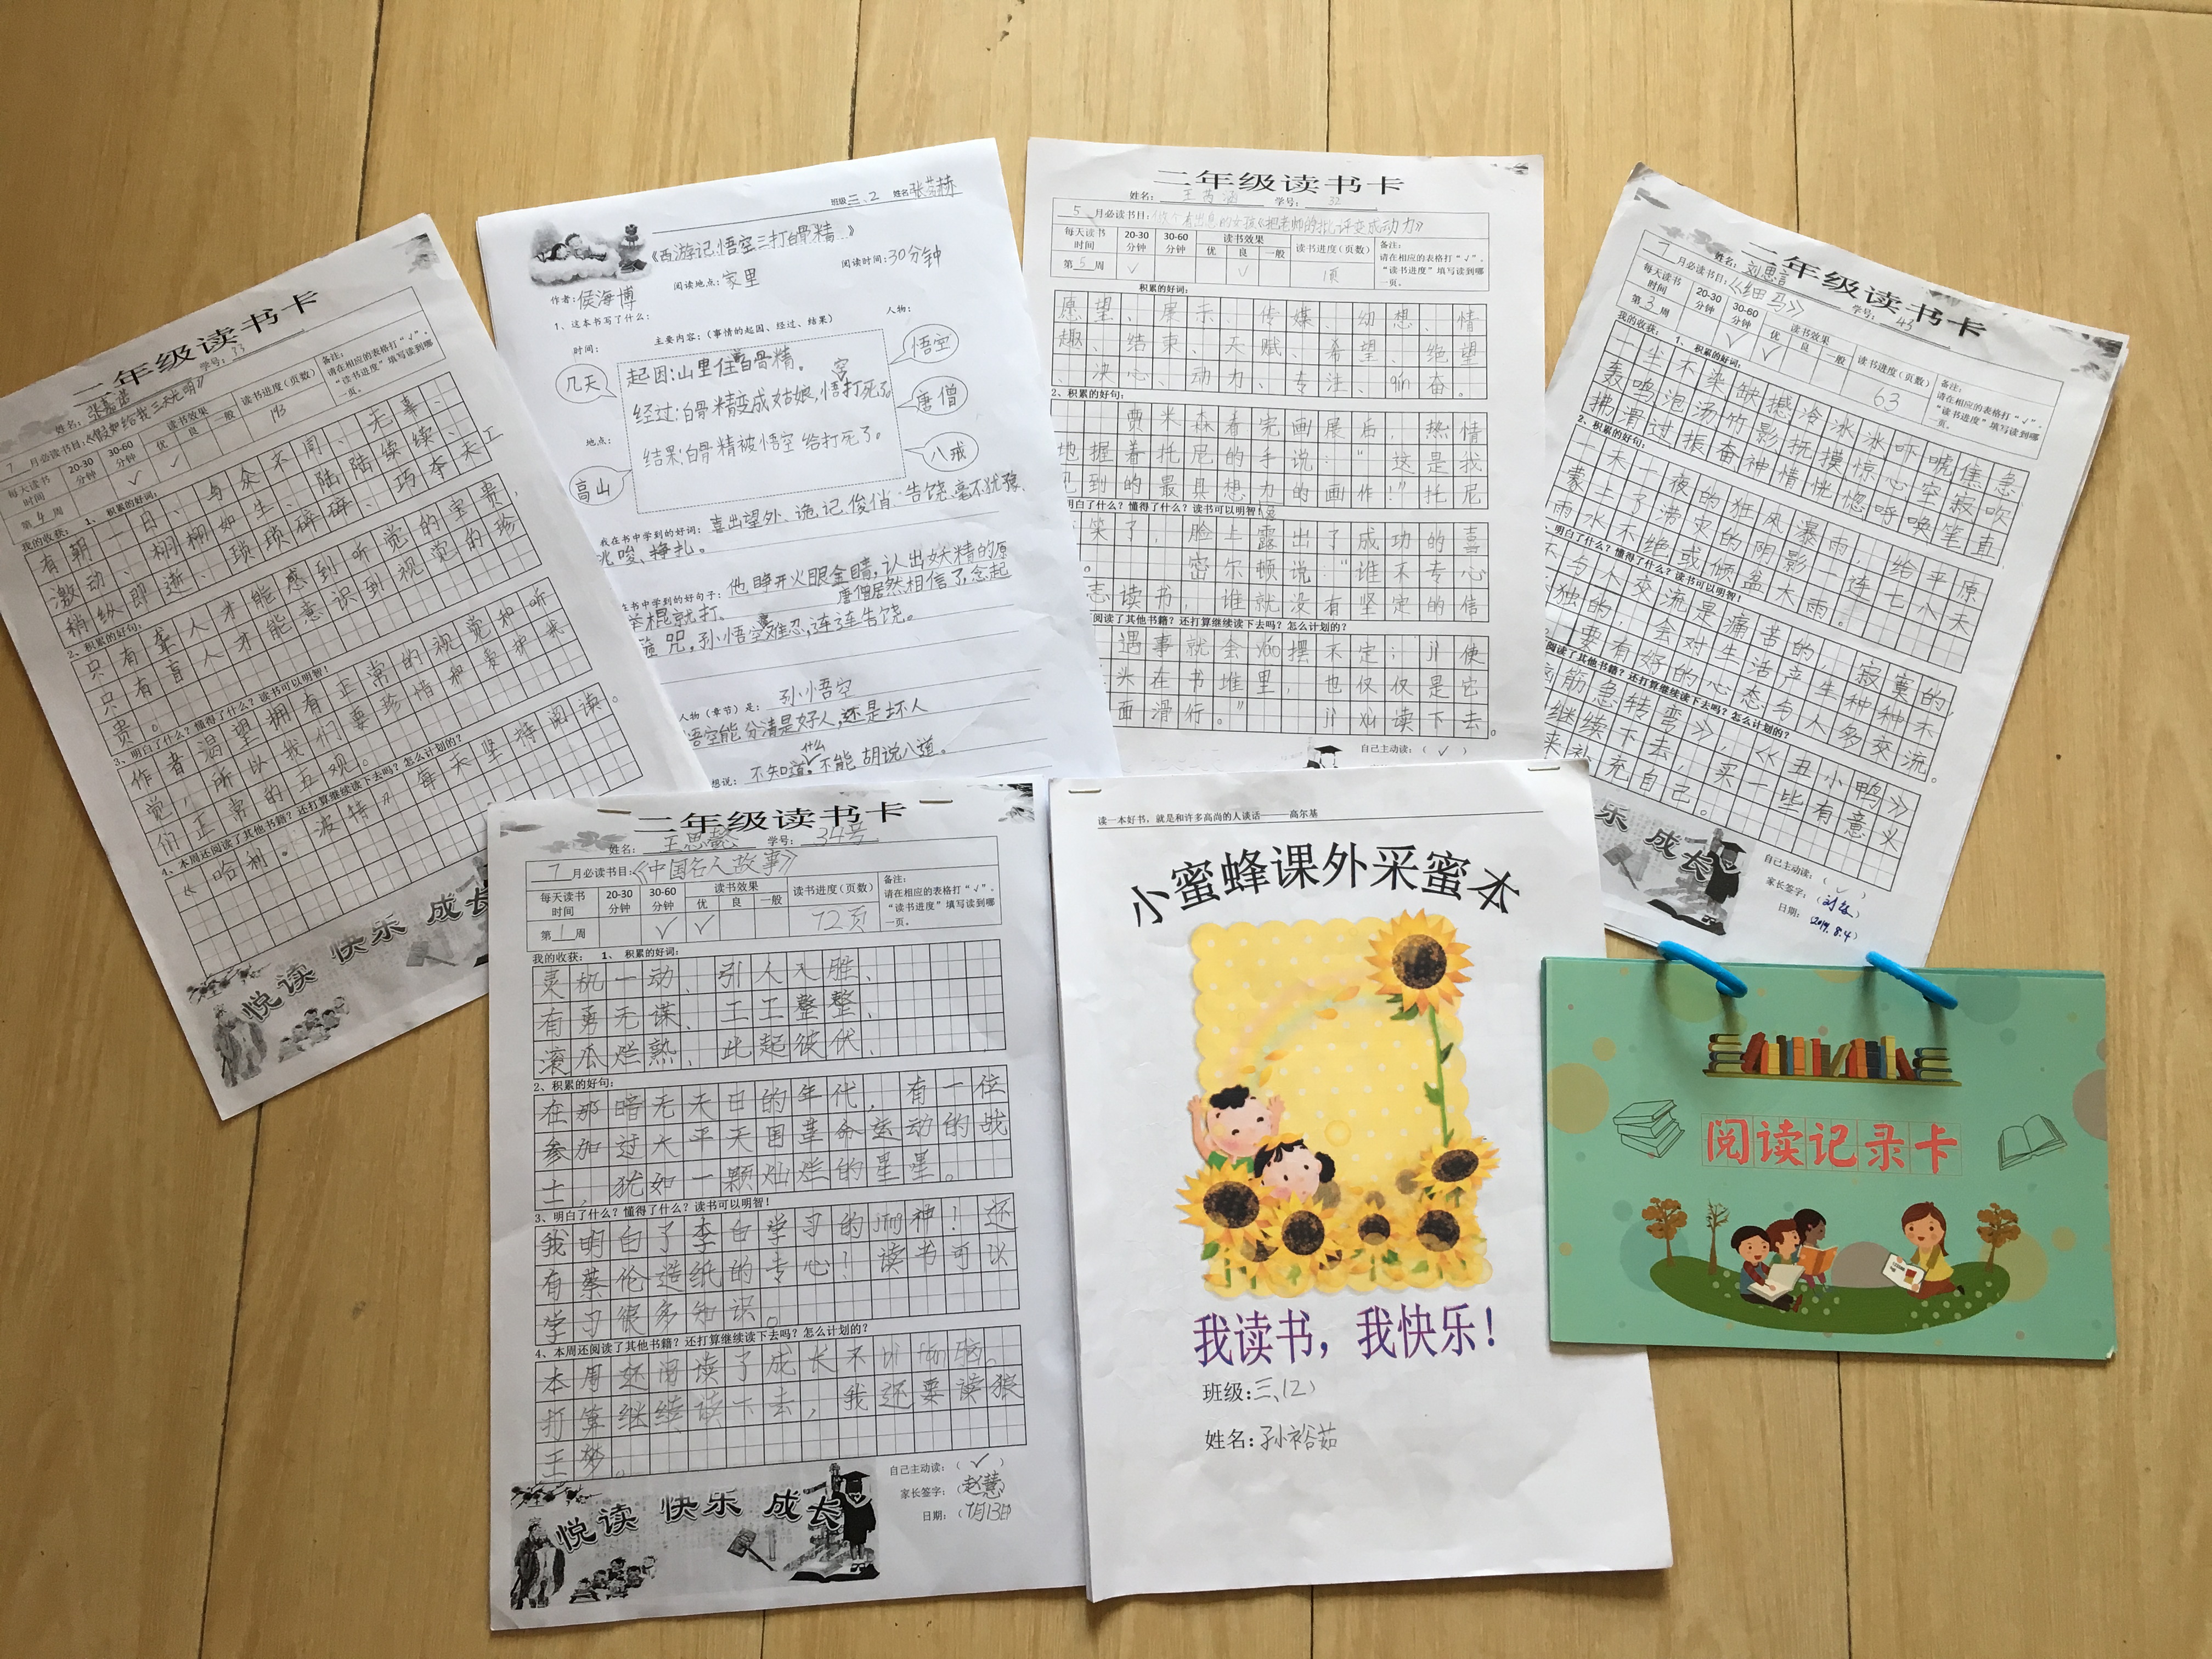 二年级读书卡
姓名：张嘉诺 学号：23
7 月必读书目：《假如给我三天光明》
每天读书时间 20-30分钟 30-60分钟 读书效果 优 良 一般 读书进度（页数） 备注：
请在相应的表格打“√”，“读书进度”填写读到哪一页。
第4周 √ √ 193
我的收获： 1、积累的好词：
有朝一日、与众不同、无辜、
激动、栩栩如生、陆陆续续、
稍纵即逝、琐琐碎碎、巧夺天工
2、积累的好句：
只有聋人才能感到听觉的宝贵，
只有盲人才能意识到视觉的珍
贵。
3、明白了什么？懂得了什么？读书可以明智！
作者渴望拥有正常的视觉和听
觉，所以我们要珍惜和爱护我
们正常的五观。
4、本周还阅读了其他书籍？还打算继续读下去吗？怎么计划的？
《哈利·波特》每天坚持阅读。
悦读 快乐 成长
班级三、2 姓名
《西游记：悟空三打白骨精…》
作者：侯海博 阅读地点：家里 阅读时间：30分钟
1、这本书写了什么：
主要内容：（事情的起因、经过、结果）
时间： 人物：
几天
地点：
高山
起因：山里住着白骨精。
经过：白骨精变成姑娘，悟空打死了。
结果：白骨精被悟空给打死了。
悟空
唐僧
八戒
我在书中学到的好词：喜出望外、诡记、俊俏、告饶、毫不犹豫、
唆、挣扎。
在书中学到的好句子：他睁开火眼金睛，认出妖精的原
举棍就打。唐僧居然相信了，念起
咒，孙悟空疼难忍，连连告饶。
人物（章节）是： 孙悟空
悟空能分清是好人，还是坏人
想说： 不知道什么，不能胡说八道。
二年级读书卡
姓名：王芮涵 学号：32
5 月必读书目：《做个有出息的女孩《把老师的批评变成动力》
每天读书时间 20-30分钟 30-60分钟 读书效果 优 良 一般 读书进度（页数） 备注：
请在相应的表格打“√”，“读书进度”填写读到哪一页。
第5周 √ √ 1页
积累的好词：
愿望、展示、传媒、幼想、情
趣、结束、天赋、希望、绝望
、决心、动力、专注、qin奋。
2、积累的好句：
贾米森看完画展后，热情
地握着托尼的手说：“这是我
见到的最具想力的画作！”托尼
明白了什么？懂得了什么？读书可以明智！
笑了，脸上露出了成功的喜
密尔顿说：“谁不专心
志读书，谁就没有坚定的信
阅读了其他书籍？还打算继续读下去吗？怎么计划的？
遇事就会yáo摆不定；jí使
头在书堆里，也仅仅是它
面滑行。” jì xù读下去。
自己主动读：（√）
二年级读书卡
姓名：刘思言 学号：43
7 月必读书目：《细马》
每天读书时间 20-30分钟 30-60分钟 读书效果 优 良 一般 读书进度（页数） 备注：
请在相应的表格打“√”，“读书进度”填写读到哪一页。
第3周 √ √ 63
我的收获： 1、积累的好词：
一尘不染缺撼冷冰冰吓唬焦急
轰鸣泡汤竹影抚摸惊心空寂吹
拂滑过振奋神情恍惚呼唤笔直
2、积累的好句：
一天一夜的狂风暴雨，给平原
蒙上了涝灾的阴影，连七八天
雨水不绝或倾盆大雨。
明白了什么？懂得了什么？读书可以明智！
不与人交流是痛苦的，寂寞的，
独的，会对生活产生种种不
要有好的心态与人多交流。
阅读了其他书籍？还打算继续读下去吗？怎么计划的？
脑筋急转弯》，《丑小鸭》
继续下去，买一些有意义
来补充自己。
乐 成长
自己主动读：（√）
家长签字：
日期：（2019.8.4）
二年级读书卡
姓名：王思懿 学号：34号
7 月必读书目：《中国名人故事》
每天读书时间 20-30分钟 30-60分钟 读书效果 优 良 一般 读书进度（页数） 备注：
请在相应的表格打“√”，“读书进度”填写读到哪一页。
第1周 √ √ 72页
我的收获： 1、积累的好词：
灵机一动、引人入胜、
有勇无谋、工工整整、
滚瓜烂熟、此起彼伏、
2、积累的好句：
在那暗无天日的年代，有一位
参加过太平天国革命运动的战
士，犹如一颗灿烂的星星。
3、明白了什么？懂得了什么？读书可以明智！
我明白了李白学习的jīng神！还
有蔡伦造纸的专心！读书可以
学习很多知识。
4、本周还阅读了其他书籍？还打算继续读下去吗？怎么计划的？
本周还阅读了成长不烦恼。
打算继续读下去，我还要读狼
王梦。
自己主动读：（√）
家长签字：（赵慧）
日期：（7月13日）
悦读 快乐 成长
读一本好书，就是和许多高尚的人谈话——高尔基
小蜜蜂课外采蜜本
我读书，我快乐！
班级：三、（2）
姓名：孙裕茹
阅读记录卡